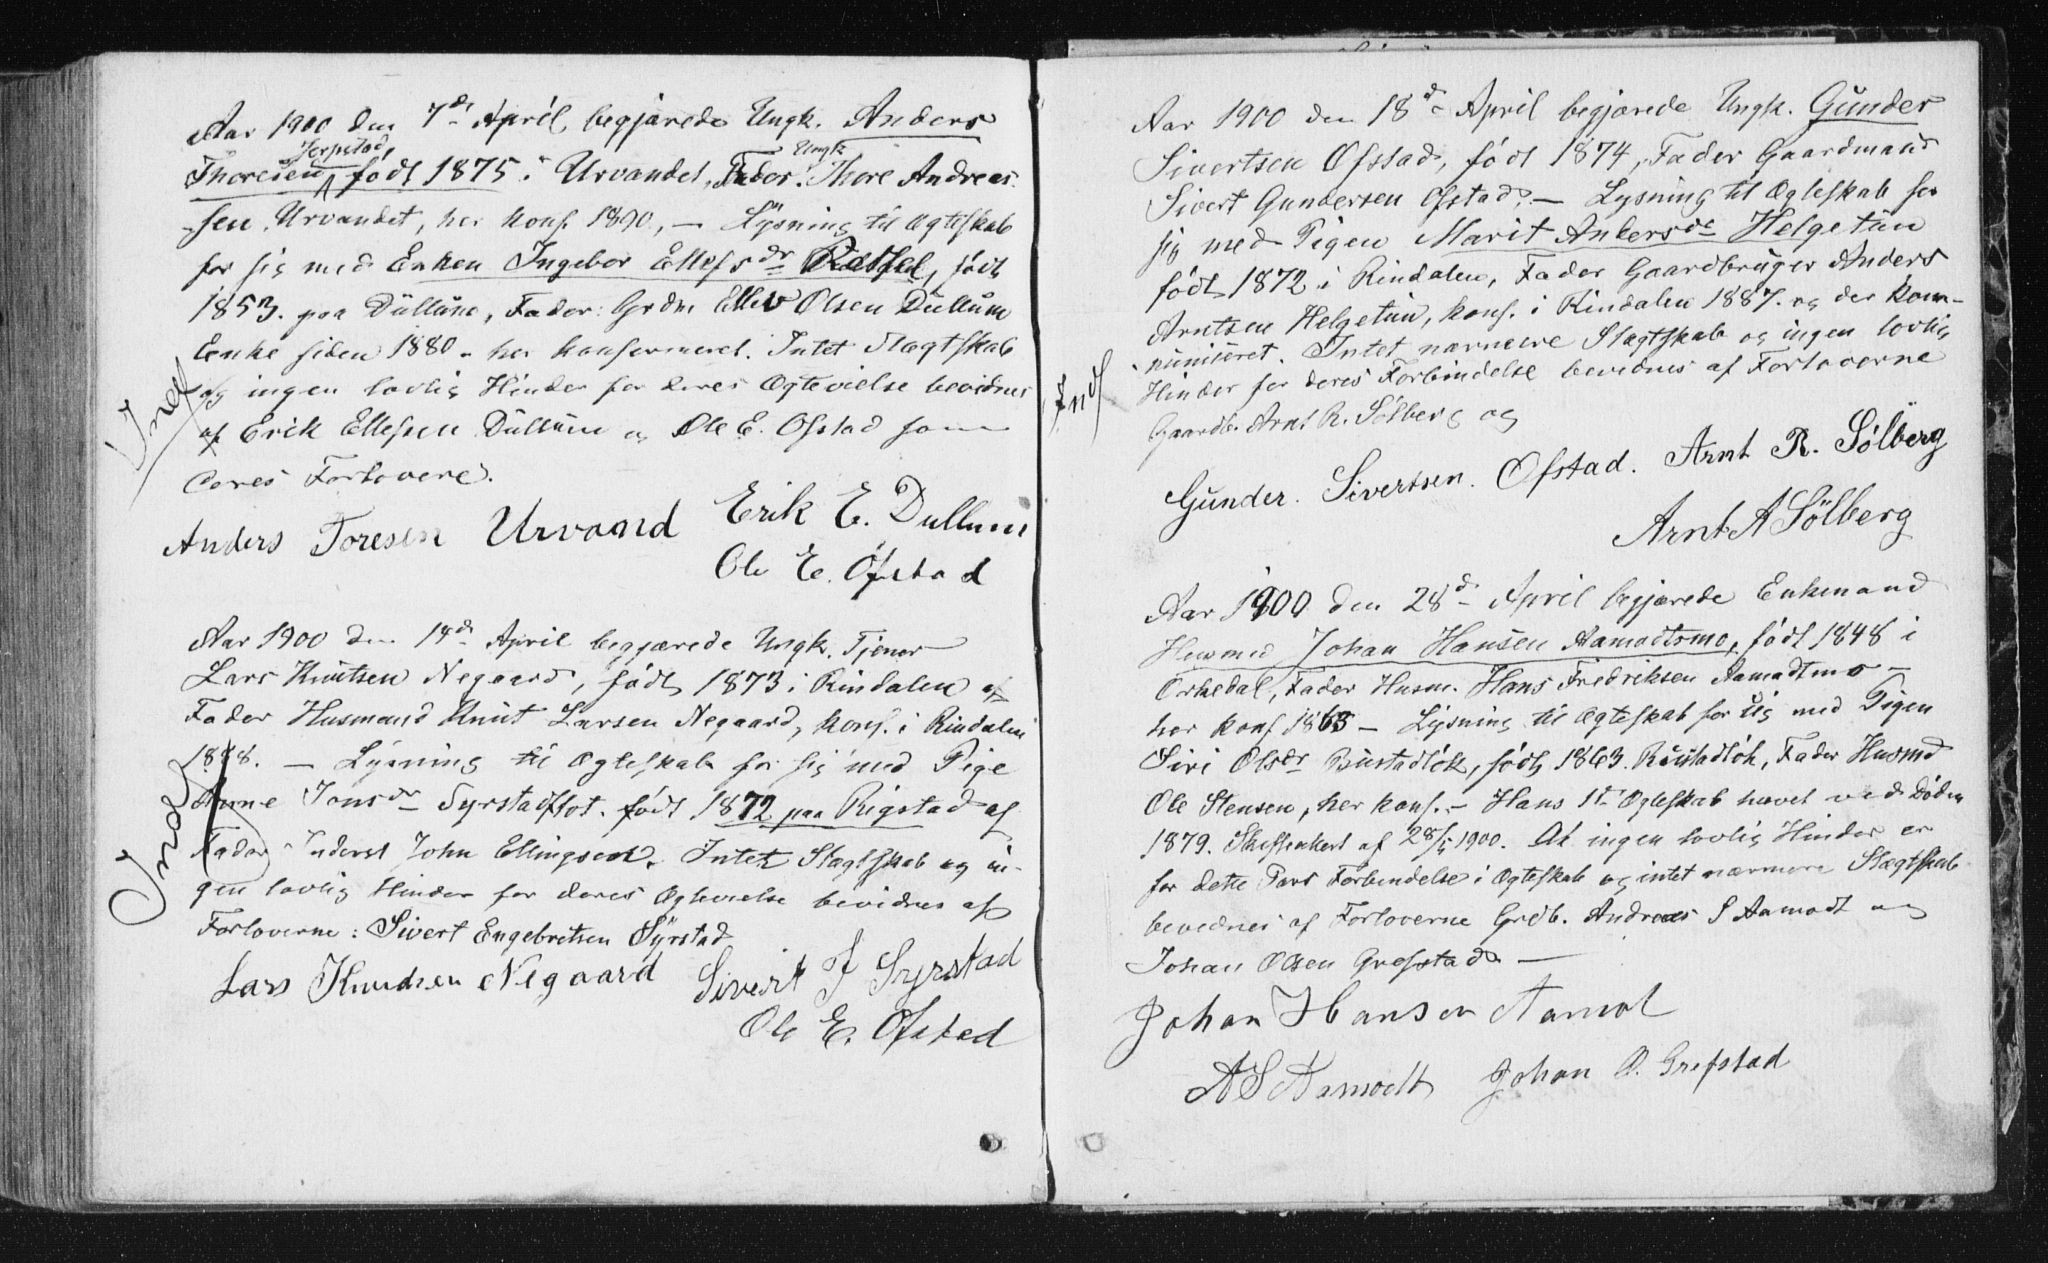 Aar 1900 den 7de April begjærede Ungk. Anders
Jerpstad, Ungk
Thoresen født 1875 i Urvandet, Fader: Thore Andreas-
sen Urvandet, her konf. 1890, — Lysning til Ægteskab
for sig med Enken Ingebor Ellefsdr født
1853. paa Düllum, Fader: Grdm. Ellev Olsen Düllum
Enke siden 1880 - her konfermeret. Intet Slægtskab
og ingen lovlig Hinder for deres Ægtevielse bevidnes
af Erik Ellefsen Düllum og Ole E. Ofstad som
deres Forlovere.
Indf
Anders Toresen Urvand Erik E. Dullum
Ole E. Ofstad
Aar 1900 den 14de April begjærede Ungk. Tjener
Lars Knutsen Negaard, født 1873 i Rindalen af
Fader Husmand Knut Larsen Negaard, konf. i Rindalen
1888. — Lysning til Ægteskab for sig med Pige
Anne Jonsdr Syrstadflot. født 1872 paa Rigstad af
Fader Inderst John Ellingsen. Intet Slægtskab og in-
gen lovlig Hinder for deres Ægtevielse bevidnes af
Forloverne: Sivert Engebretsen Syrstad
Indf
Lars Knudsen Negaard Sivert J Syrstad
Ole E. Ofstad
Aar 1900 den 18de April begjærede Ungk. Gunder
Sivertsen Ofstad, født 1874, Fader Gaardmand
Sivert Gundersen Ofstad. — Lysning til Ægteskab for
sig med Pigen Marit Andersdr Helgetun
født 1872 i Rindalen, Fader Gaardbruger Anders
Arntsen Helgetun, konf. i Rindalen 1887. og der kom-
muniseret. Intet nærmere Slægtskab og ingen lovlig
Hinder for deres Forbindelse bevidnes af Forloverne
Gaardb. Arnt R. Sólberg og
Indf
Gunder. Sivertsen. Ofstad. Arnt R. Sólberg
Arnt A Sölberg
Aar 1900 den 28de April begjærede Enkemand
Husmd Johan Hansen Aamodtsmo, født 1848 i
Orkedal, Fader Husm. Hans Fredriksen Aamodtmo —
her konf. 1863 — Lysning til Ægteskab for sig med Pigen
Siri Olsdr Rüstadløk, født 1863. Rüstadløk, Fader Husmd
Ole Stensen, her konf. — Hans 1ste Ægteskab hævet ved Døden
1879. Skifteattest af 28/4 1900. At ingen lovlig Hinder er
for dette Pars Forbindelse i Ægteskab og intet nærmere Slægtskab
bevidnes af Forloverne Grdb. Andreas S Aamodt og
Johan Olsen Grefstad —
Johan Hansen Aamot
A S Aamodt Johan O. Grefstad